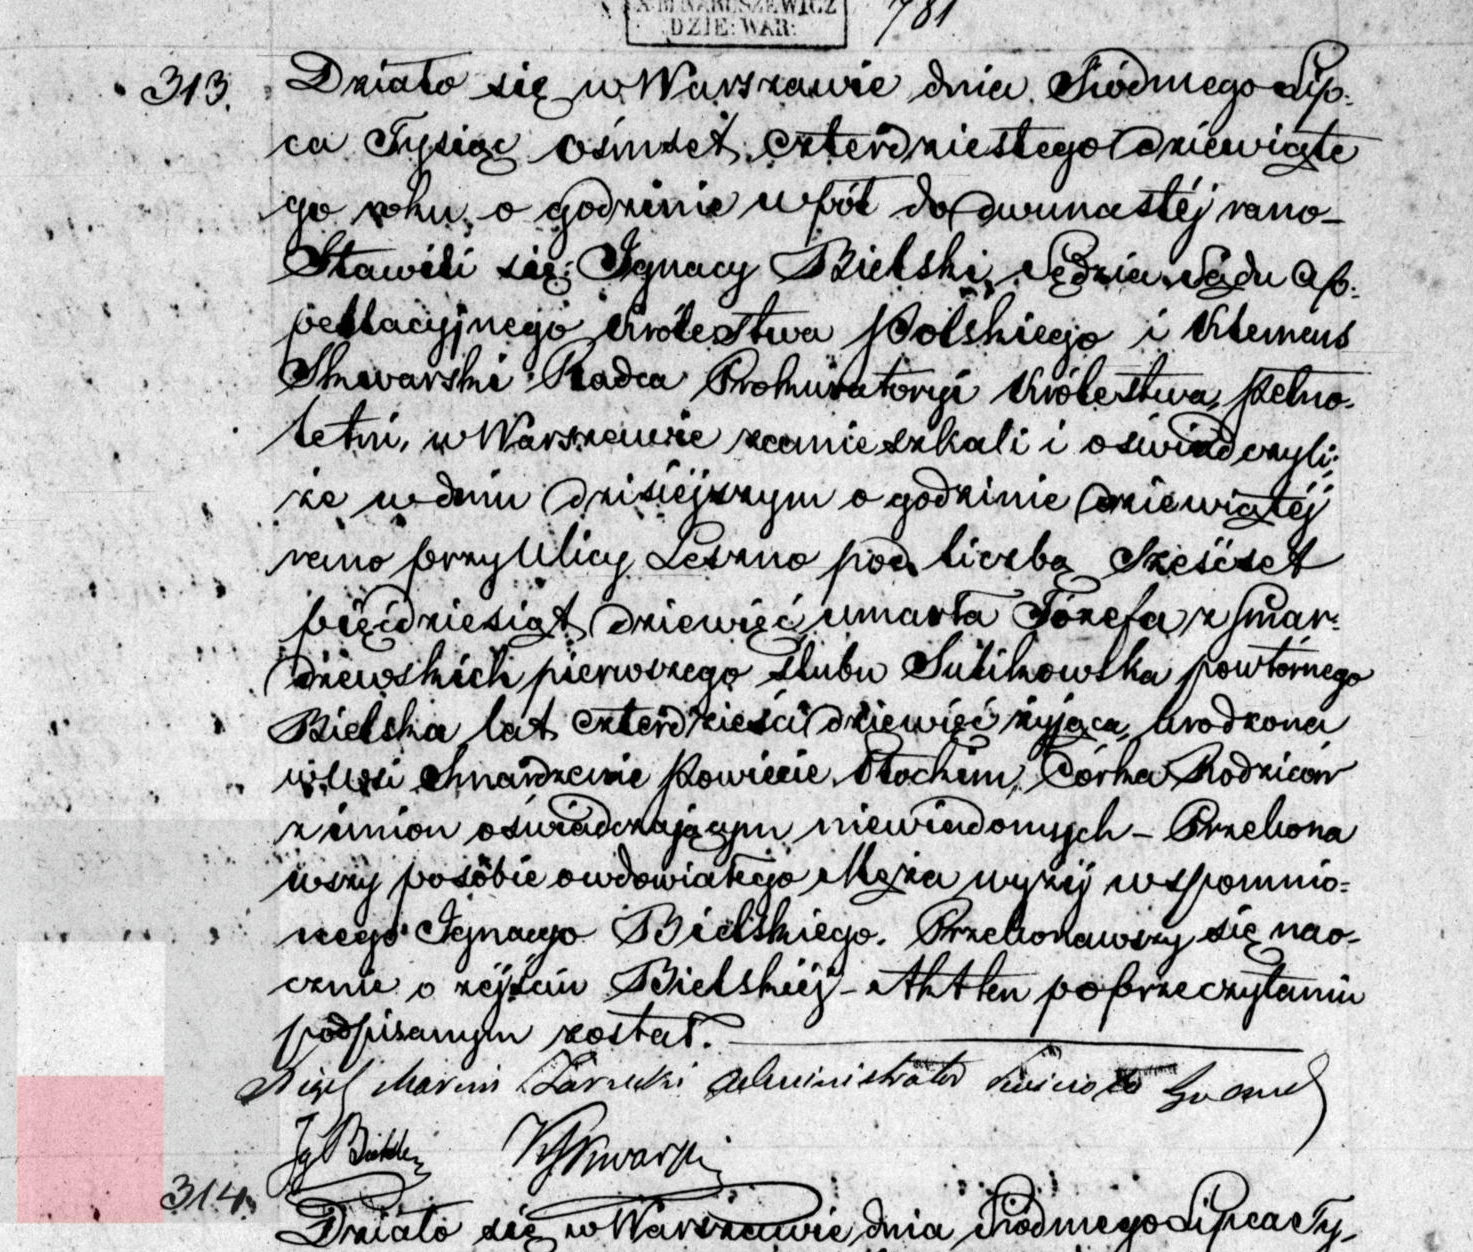 X. M NARUSZEWICZ
DZIE: WAR:
781
313. Działo się w Warszawie dnia Siódmego Lip-
ca Tysiąc ośmset czterdziestego dziewiąte
go roku o godzinie wpół do dwunastéj rano–
Stawili się: Ignacy Bielski Sędzia Sądu Ap-
pellacyjnego Królestwa Polskiego i Klemens
Skwarski Radca Prokuratoryi Królestwa, pełno-
letni, w Warszawie zamieszkali i oświadczyli;
że w dniu dzisiéjszym o godzinie dziewiątéj
rano przy Ulicy Leszno pod liczbą sześćset
pięćdziesiąt dziewięć umarła Józefa z Smar-
dzewskich pierwszego ślubu Sulikowska powtórnego
Bielska lat czterdzieści dziewięć żyjąca, urodzona
w wsi Smardzewie Powiecie Płockim, Córka Rodziców
z imion oświadczającym niewiadomych – Przekona
wszy po sobie owdowiałego Męża wyżéj wspomnio-
nego Ignacego Bielskiego. Przekonawszy się nao-
cznie o zéjściu Bielskiéj – Akt ten po przeczytaniu
podpisanym został.
Marcin administrator Kościoła
Ig Bielski KSkwarski
314. Działo się w Warszawie dnia Siódmego Lipca Ty-